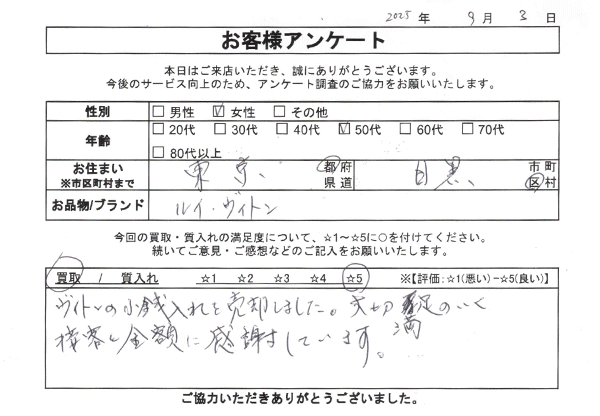 2025 年 9 月 3 日
お客様アンケート
本日はご来店いただき、誠にありがとうございます。
今後のサービス向上のため、アンケート調査のご協力をお願いいたします。
性別 □ 男性 ☑ 女性 □ その他
年齢 □ 20代 □ 30代 □ 40代 ☑ 50代 □ 60代 □ 70代
□ 80代以上
お住まい ※市区町村まで 東京 都府県道 目黒 市町区村
お品物/ブランド ルイ・ヴィトン
今回の買取・質入れの満足度について、☆1～☆5に○を付けてください。
続いてご意見・ご感想などのご記入をお願いいたします。
買取 / 質入れ ☆1 ☆2 ☆3 ☆4 ☆5 ※【評価:☆1(悪い)−☆5(良い)】
ヴィトンの小銭入れを売却しました。大切 満足のいく
接客と金額に感謝しています。
ご協力いただきありがとうございました。